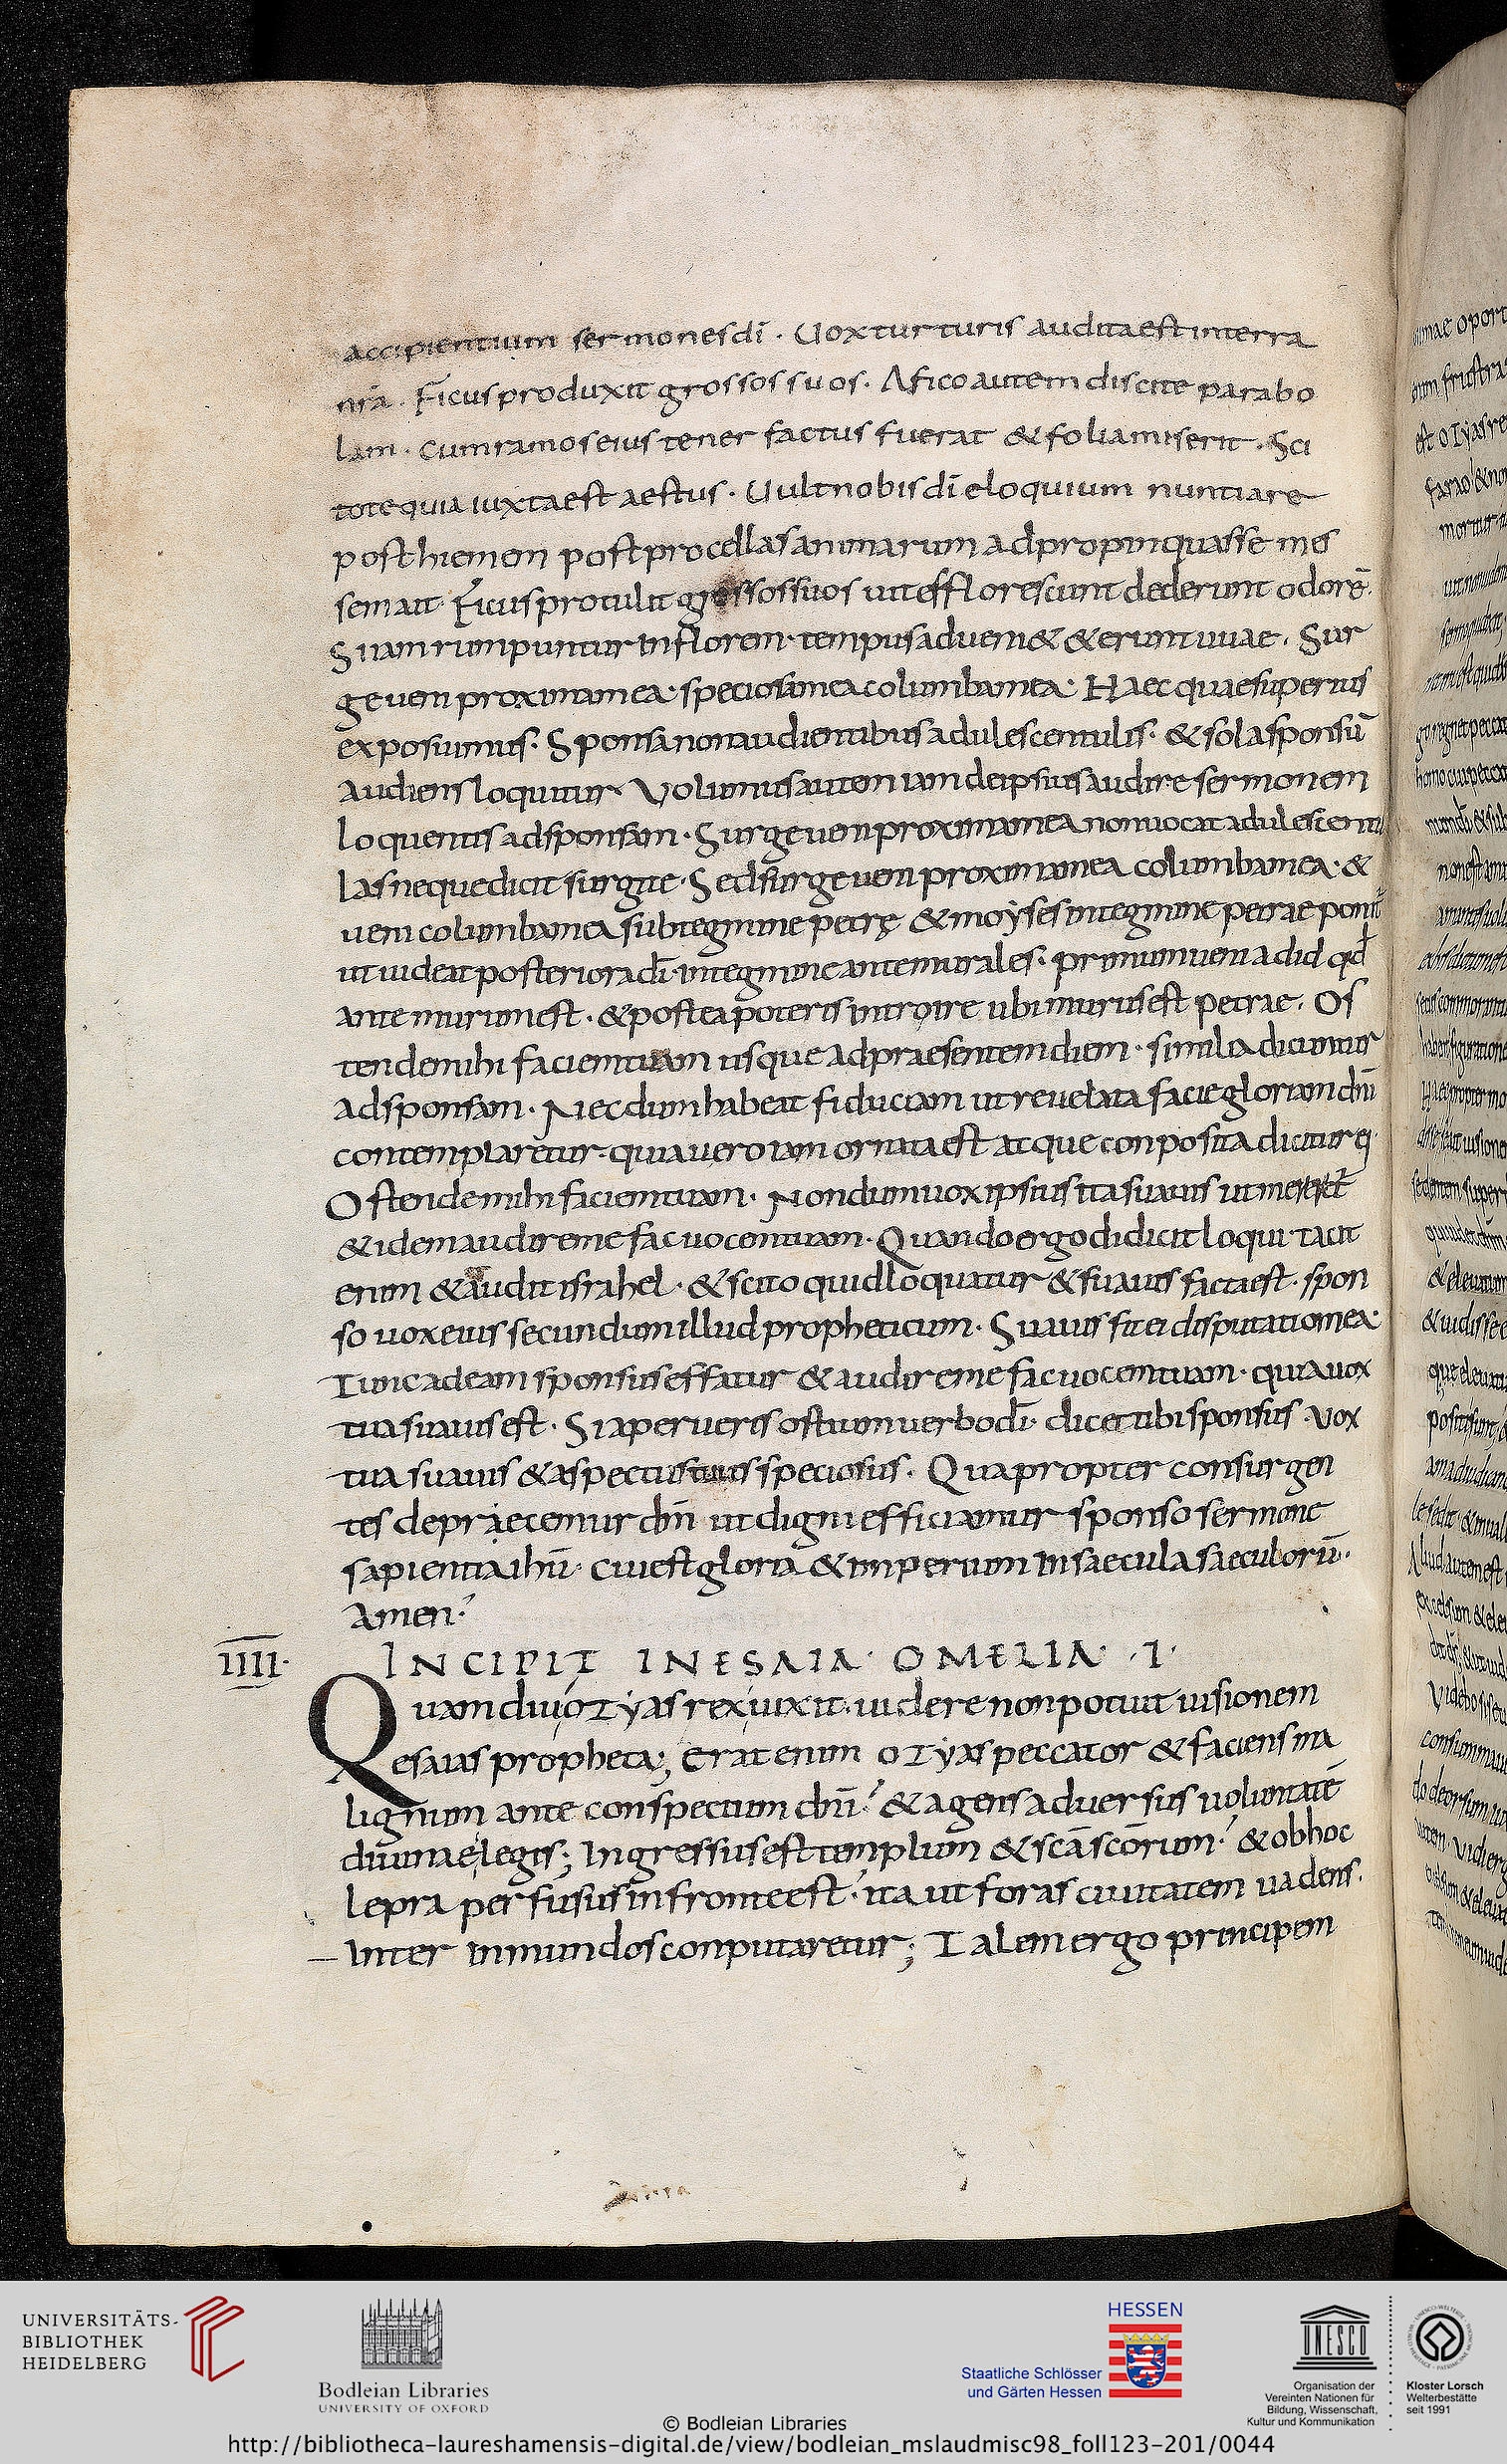 accipientium sermones dī · Uox turturis audita est in terra
nrā · Ficus produxit grossos suos · A fico autem discite parabo
lam · cum ramos eius tener factus fuerat & folia miserit · Sci
tote quia iuxta est aestus · Uult nobis dī eloquium nuntiare
post hiemem post procellas animarum adpropinquasse mes
sem ait · Ficus protulit grossos suos uit efflorescunt dederunt odorē ·
Suam rumpuntur in florem · tempus adueni& & erunt uuae · Sur
ge ueni proxima mea · speciosa mea columba mea · Haec quae superius
exposuimus · Sponsa non audientibus adulescentulis · & sola sponsū
audiens loquitur Volumus autem iam de ipsius audire sermonem
loquentis ad sponsam · Surge ueni proxima mea non uocat adulescentu
las neque dicit surgite · Sed surge ueni proxima mea columba mea · &
ueni columba mea sub tegmine petrę & moyses in tegmine petrae ponit̄
ut uideat posteriora dī · in tegmine antemurales · primum ueni ad id qd̄
ante murum est · & postea poteris introire ubi murus est petrae · Os
tende mihi faciem tuam usque ad praesentem diem · similia dicuntur
ad sponsam · Nec dum habeat fiduciam ut reuelata facie gloriam dnī
contemplaretur · quia uero iam ornata est atque conposita dicitur ei ·
Ostende mihi faciem tuam · Nondum uox ipsius ita suauis ut mereret̄
& idem audire me fac uocem tuam · Quando ergo didicit loqui · tacit
enim & audit israhel · & scito quid loquatur & suauis facta est · spon
so uox eius secundum illud propheticum · Suauis sit ei disputatio mea ·
Tunc ad eam sponsus effatur & audire me fac uocem tuam · quia uox
tua suauis est · Si aperueris ostium uerbo dī · dicet tibi sponsus · Vox
tua suauis & aspectus tuus speciosus · Quapropter consurgen
tes depraecemur dnm̄ ut digni efficiamur sponso sermone
sapientia ihū · cui est gloria & imperium in saecula saeculorū ·
Amen ·
IIII · INCIPIT IN ESAIA · OMELIA · I ·
Quam diu oZyas rex uixit · uidere non potuit uisionem
esaias propheta; Erat enim oZyas peccator & faciens ma
lignum ante conspectum dnī · & agens aduersus uoluntatē
diuinae legis; Ingressus est templum & scā scōrum · & ob hoc
lepra perfusus in fronte est · ita ut foras ciuitatem uadens ·
inter inmundos conputaretur; Talem ergo principem
UNIVERSITÄTS-
BIBLIOTHEK
HEIDELBERG
Bodleian Libraries
UNIVERSITY OF OXFORD
HESSEN
Staatliche Schlösser
und Gärten Hessen
UNESCO
Organisation der
Vereinten Nationen für
Bildung, Wissenschaft,
Kultur und Kommunikation
Kloster Lorsch
Welterbestätte
seit 1991
© Bodleian Libraries
http://bibliotheca-laureshamensis-digital.de/view/bodleian_mslaudmisc98_foll123-201/0044